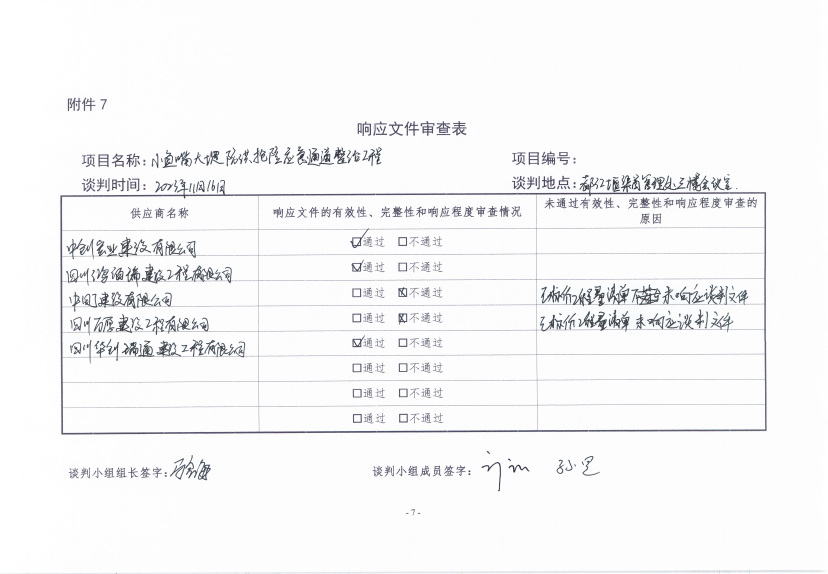 附件 7
响应文件审查表
项目名称：小鱼嘴大堤防洪抢险应急通道整治工程 项目编号：
谈判时间：2023年11月16日 谈判地点：都江堰渠首管理处三楼会议室.
供应商名称 响应文件的有效性、完整性和响应程度审查情况 未通过有效性、完整性和响应程度审查的原因
中创宏业建设有限公司 ☑通过 □不通过
四川 建设工程有限公司 ☑通过 □不通过
建设有限公司 □通过 ☒不通过 已标价工程量清单 未响应谈判文件
四川 建设工程有限公司 □通过 ☒不通过 已标价工程量清单未响应谈判文件
四川华创瑞通建设工程有限公司 ☑通过 □不通过
□通过 □不通过
□通过 □不通过
□通过 □不通过
谈判小组组长签字： 谈判小组成员签字：
- 7 -